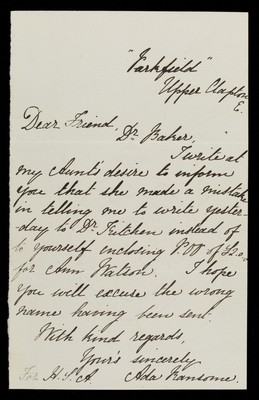 "Parkfield"
Upper Clapton
E.
Dear Friend,
Dr. Baker,
I write at
my Aunt's desire to inform
you that she made a mistake
in telling me to write yester-
day to Dr. Kitchen instead of
to yourself enclosing P.O.O of
for Ann Watson. I hope
you will excuse the wrong
name having been sent.
With kind regards,
Your's sincerely
For H. S. A. Ada Ransome.